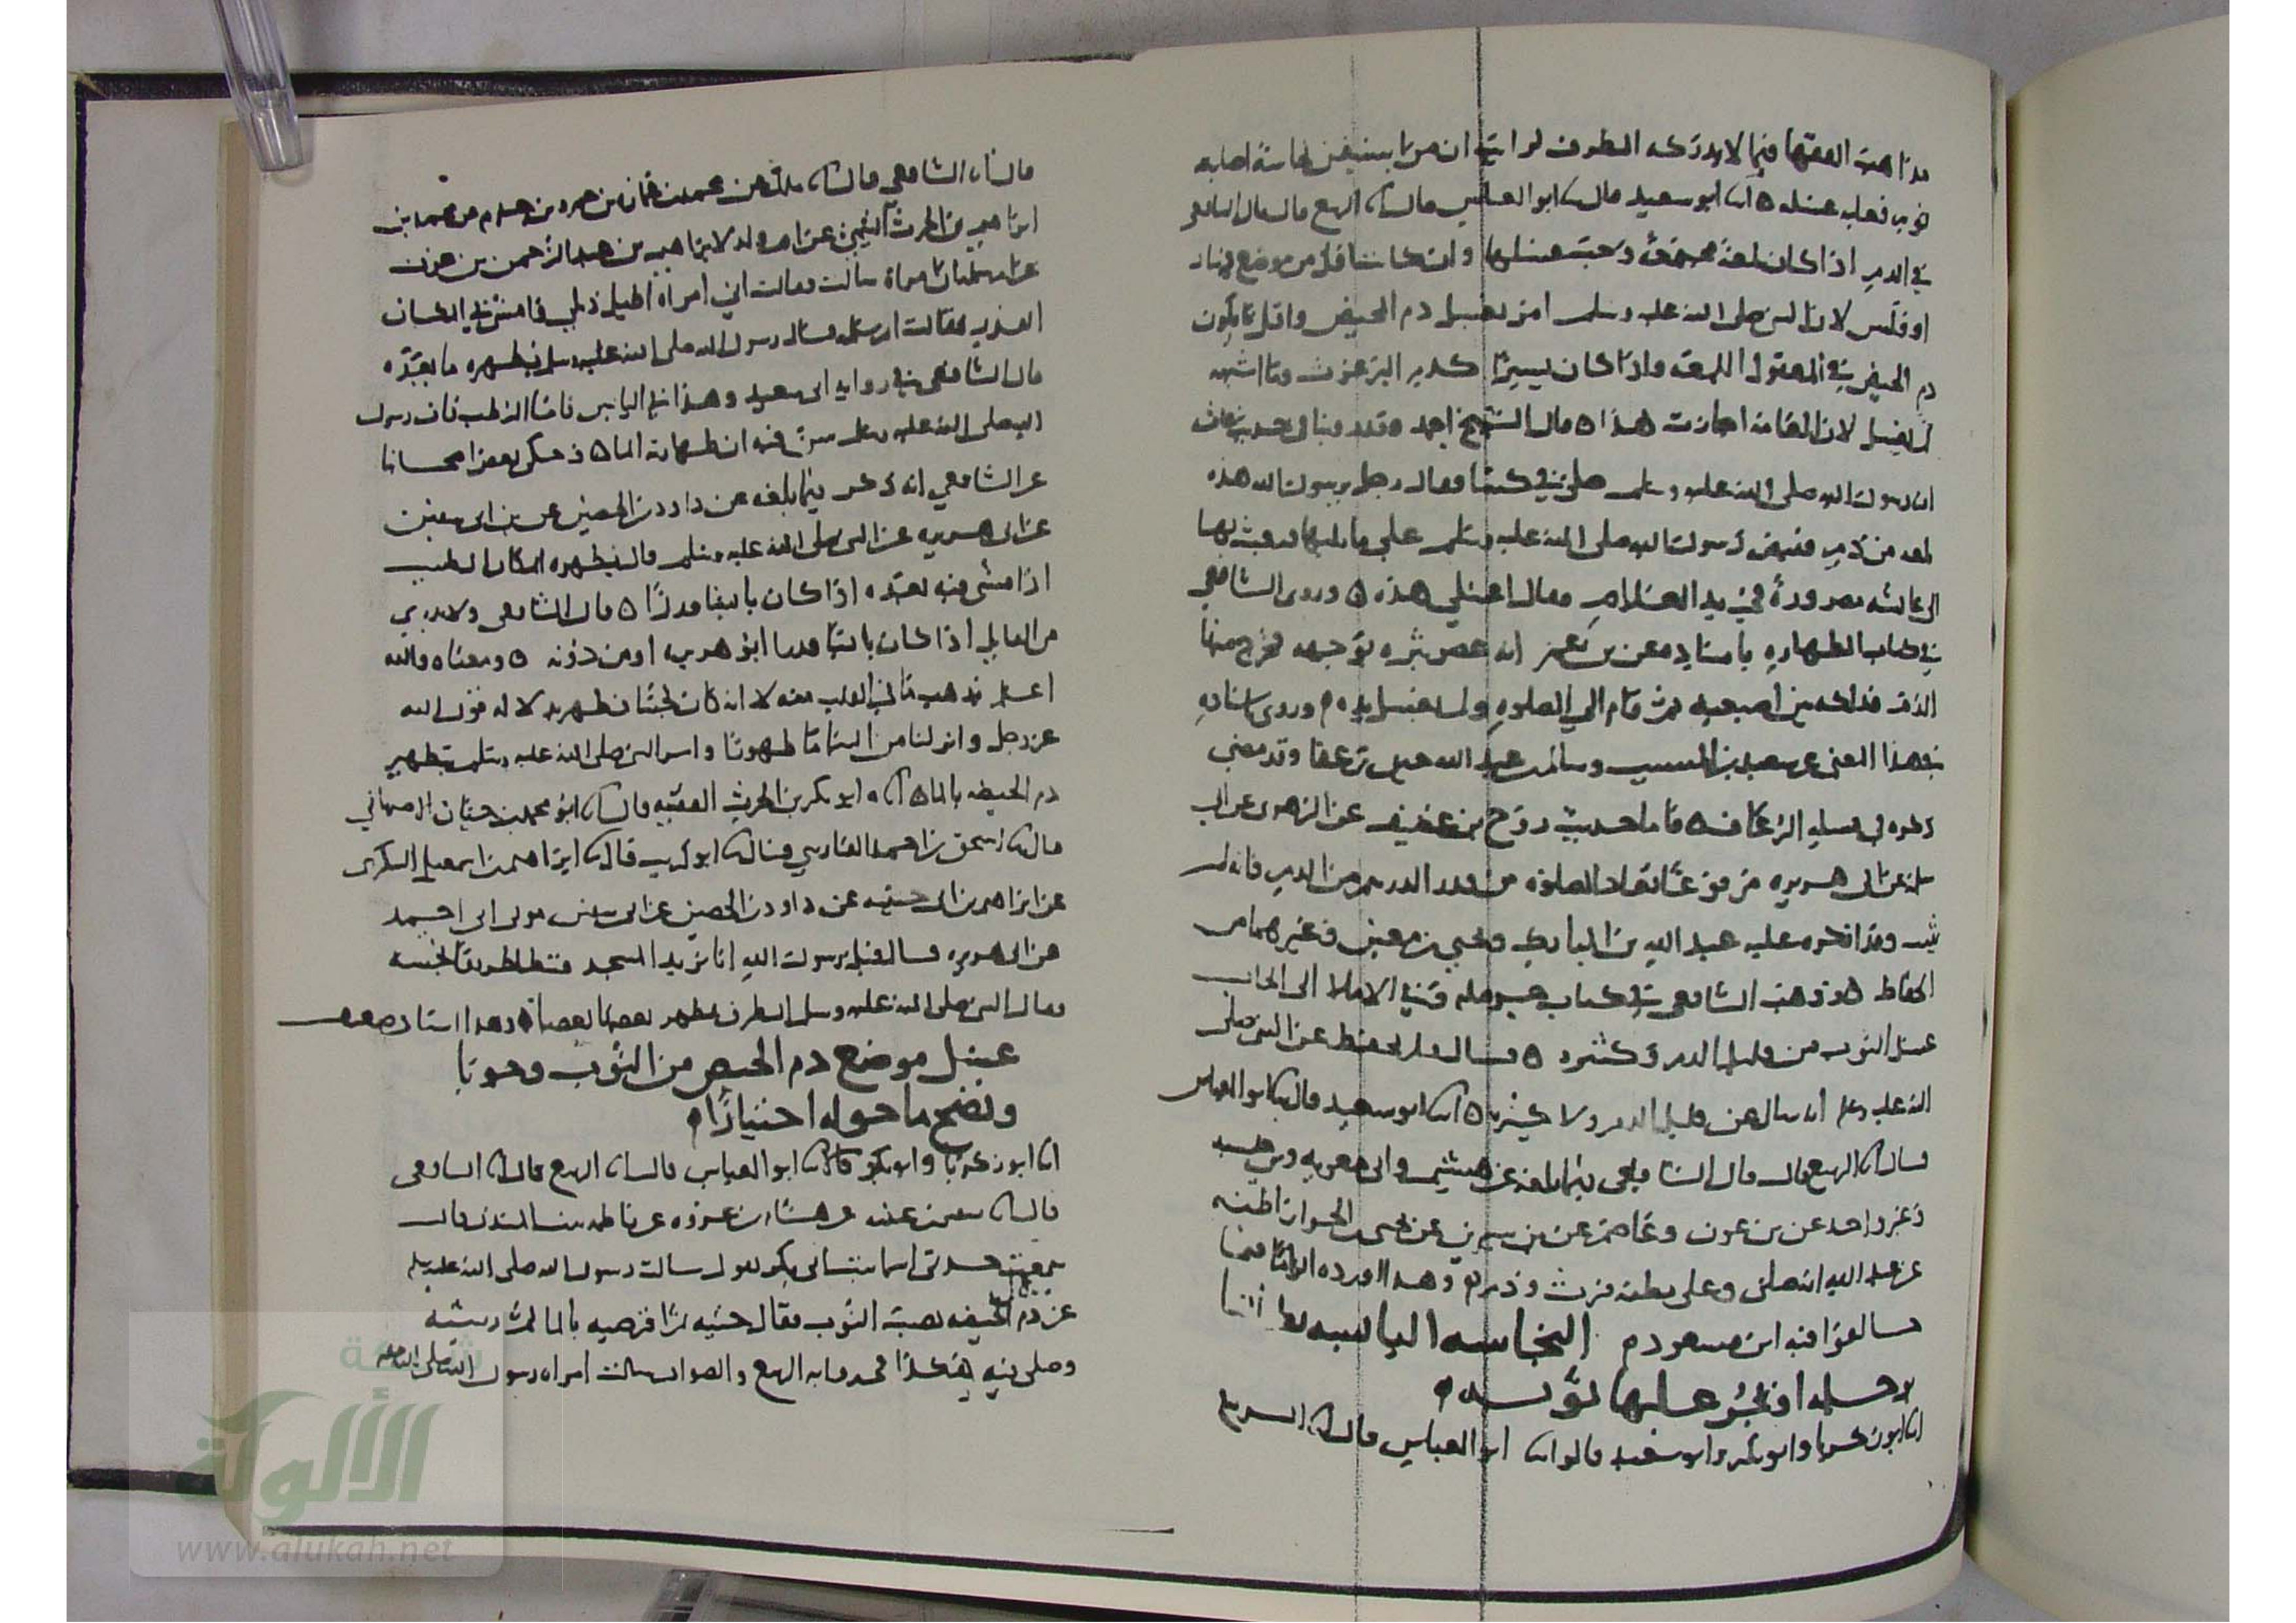 مذاهب الفقها فيما لا يدركه الطرف لو ان من استيقن نجاسة اصابه
ثوب فعليه غسله ٥ انا ابو سعيد قال نا ابو العباس قال نا الربيع قال قال الشافعي
في الدم اذا كان لمعة مجتمعة وجب غسلها وان كانت اقل من موضع دينار
او فلس لان النبي صلى الله عليه وسلم امر بغسل دم الحيض واقل ما يكون
دم الحيض في المعقول اللمعة واذا كان يسيرا كدم البرغوث وما اشبهه
لم يغسل لان العامة اجازت هذا ٥ قال الشيخ احمد وقد روينا في حديث
ان رسول الله صلى الله عليه وسلم صلى في كسا فقال رجل يرسول الله هذه
لمعه من دم فقبض رسول الله صلى الله عليه وسلم على ما يليها فبعث بها
الى عائشه مصرورة في يد الغلام فقال اغسلي هذه ٥ وروى الشافعي
في كتاب الطهاره باسناده عن بن عمر انه عصر بثره بوجهه فخرج منها
الدم فدلكه بين اصبعيه ثم قام الى الصلوه ولم يغسل يده وروى باسناده
في هذا المعنى عن سعيد بن المسيب وسالم بن عبد الله حين رعفا وقد مضى
ذكره في مسله الرعاف ٥ فاما حديث روح بن غطيف عن الزهري عن ابي
سلمة عن ابي هريره مرفوعا تعاد الصلوه من قدر الدرهم من الدم فانه لم
يثبت وقد انكره عليه عبد الله بن المبارك ويحيى بن معين وغيرهما من
الحفاظ ٥ وذهب الشافعي في كتاب حرمله وفي الاملا الى ايجاب
غسل الثوب من قليل الدم وكثيره ٥ قال ولم يحفظ عن النبي صلى
الله عليه وسلم انه سال عن قليل الدم ولا كثيره ٥ انا ابو سعيد قال نا ابو العباس
قال نا الربيع قال قال الشافعي فيما بلغه عن هشيم وابي معويه
وغير واحد عن بن عون وعاصم عن بن سيرين عن يحيى بن الجزار
عن عبد الله انه صلى وعلى بطنه فرث ودم وهذا اورده الزاما فيما
خالفوا فيه ابن مسعود م النجاسه اليابسه يطاها
برجله او يجر عليها ثوبه
انا ابو زكريا وابو بكر وابو سعيد قالوا انا ابو العباس قال نا الربيع
قال نا الشافعي قال نا ملك عن محمد بن عمارة بن عمرو بن حزم عن محمد بن
ابراهيم بن الحرث التيمي عن ام ولد لابراهيم بن عبد الرحمن بن عوف
عن ام سلمة ان امراة سالت فقالت اني امراة اطيل ذيلي فامشي في المكان
القذر فقالت ام سلمه قال رسول الله صلى الله عليه وسلم يطهره ما بعده
قال الشافعي في روايه ابي سعيد وهذا في اليابس فاما الرطب فان رسول
الله صلى الله عليه وسلم سن فيه ان طهارته الما ٥ وحكى بعض اصحابنا
عن الشافعي انه ذكر فيما بلغه عن داود بن الحصين عن بن ابي سفين
عن ابي هريره عن النبي صلى الله عليه وسلم قال يطهره المكان الطيب
اذا مشى فيه بعده اذا كان يابسا قذرا ٥ قال الشافعي ولا ندري
من القايل اذا كان يابسا قذرا ابو هريره او من دونه ٥ ومعناه والله
اعلم يذهب ما في القلب منه لا انه كان نجسا فطهر به لا لقول الله
عز وجل وانزلنا من السما ما طهورا وامر النبي صلى الله عليه وسلم بتطهير
دم الحيضه بالما ٥ انا ابو بكر بن الحرث الفقيه قال نا ابو محمد بن حيان الاصبهاني
قال نا اسحق بن احمد الفارسي قال نا ابو كريب قال نا ابراهيم بن اسمعيل اليشكري
عن ابراهيم بن ابي حبيبه عن داود بن الحصين عن ابي سفين مولى ابي احمد
عن ابي هريره قال قيل يرسول الله انا نريد المسجد فنطا الطريق النجسه
فقال النبي صلى الله عليه وسلم الطرق يطهر بعضها بعضا ٥ وهذا اسناد ضعيف
غسل موضع دم الحيض من الثوب وجوبا
ونضح ما حوله اختيارا م
انا ابو زكريا وابو بكر قالا نا ابو العباس قال نا الربيع قال نا الشافعي
قال نا سفين بن عيينه عن هشام بن عروه عن فاطمه بنت المنذر قالت
سمعت جدتي اسما بنت ابي بكر تقول سالت رسول الله صلى الله عليه وسلم
عن دم الحيضه يصيب الثوب فقال حتيه ثم اقرصيه بالما ثم رشيه
وصلي فيه هكذا في روايه الربيع والصواب سالت امراه رسول الله صلى الله عليه
شبكة
الألوكة
www.alukah.net